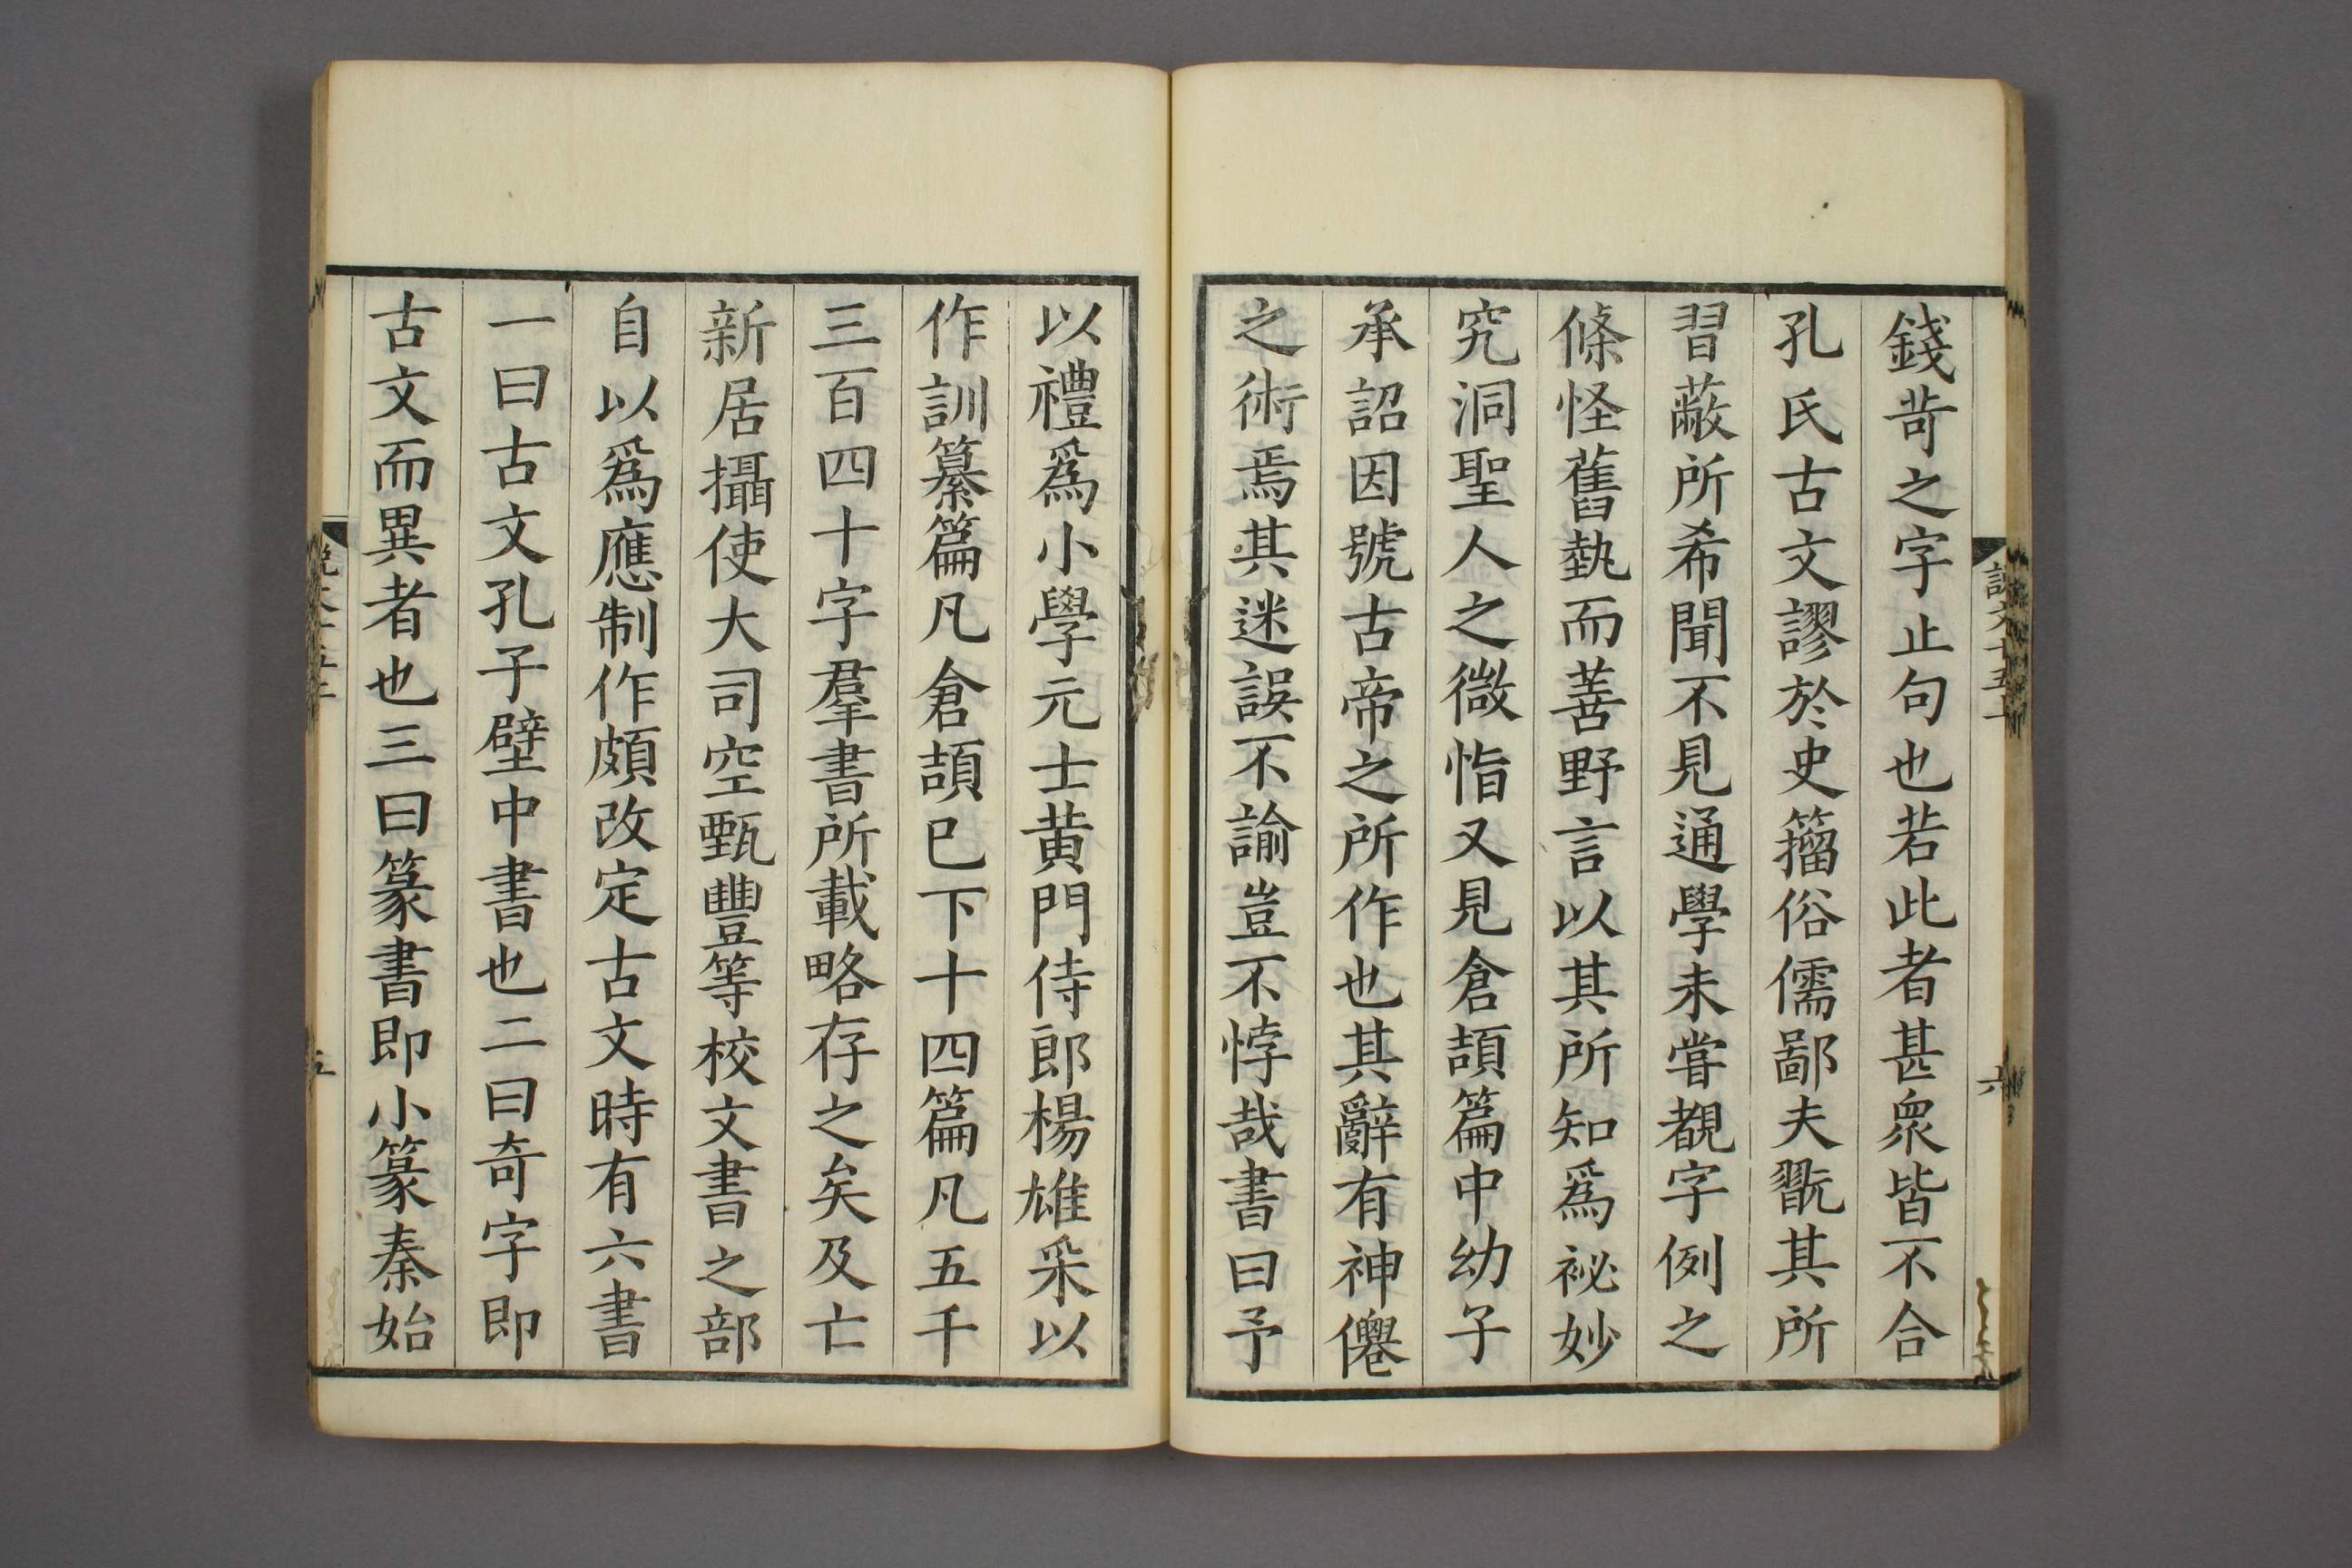 說文十五上
六
錢苛之字止句也若此者甚衆皆不合
孔氏古文謬於史籒俗儒鄙夫翫其所
習蔽所希聞不見通學未嘗覩字例之
條怪舊埶而善野言以其所知爲祕妙
究洞聖人之微恉又見倉頡篇中幼子
承詔因號古帝之所作也其辭有神僊
之術焉其迷誤不諭豈不悖哉書曰予
以禮爲小學元士黃門侍郎楊雄采以
作訓纂篇凡倉頡巳下十四篇凡五千
三百四十字羣書所載略存之矣及亡
新居攝使大司空甄豐等校文書之部
自以爲應制作頗改定古文時有六書
一曰古文孔子壁中書也二曰奇字即
古文而異者也三曰篆書即小篆秦始
五